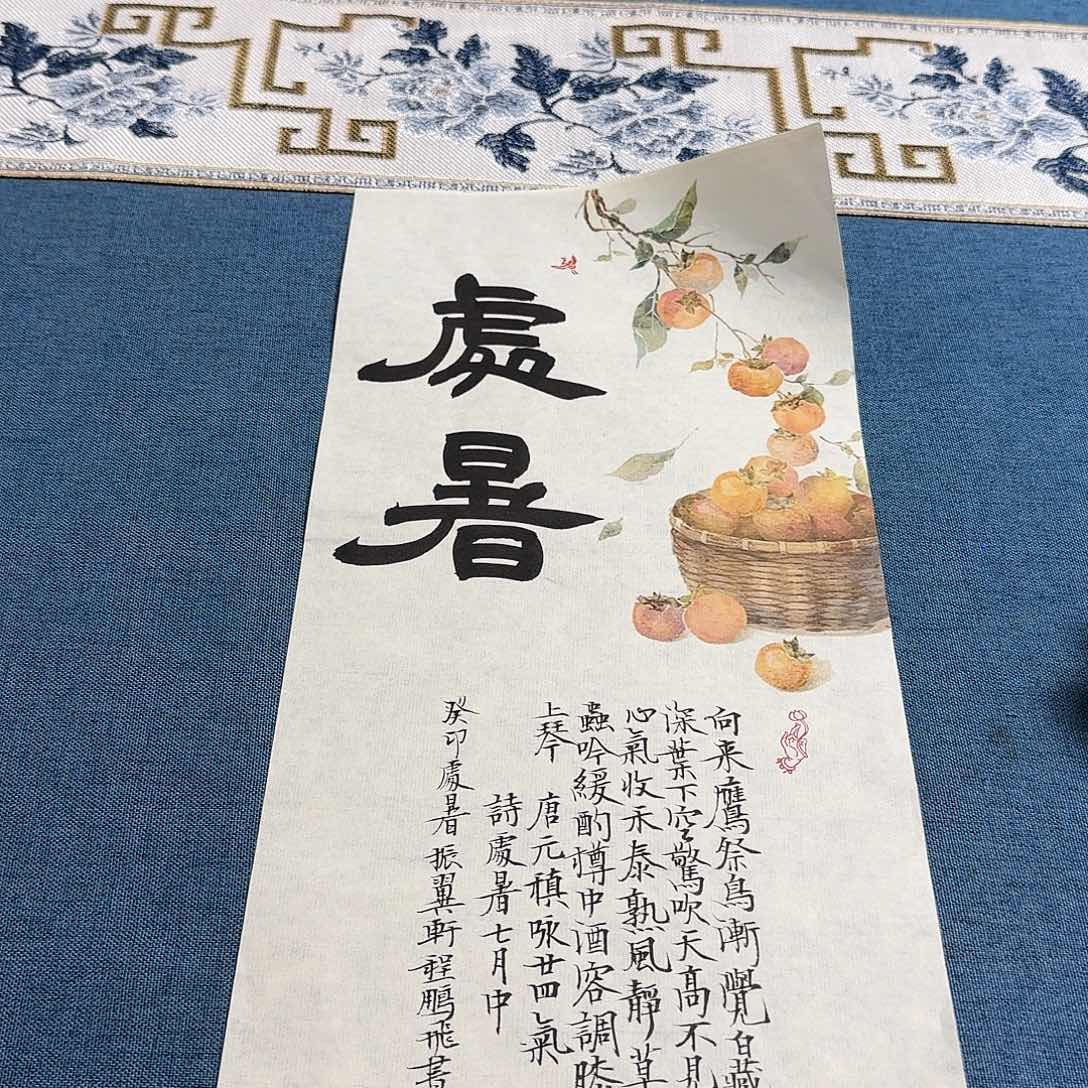 處暑
向来鷹祭鳥漸覺白藏
深葉下空驚吹天高不見
心氣收禾黍熟風靜草
蟲吟緩酌樽中酒容調膝
上琴 唐元稹咏廿四氣
詩處暑七月中
癸卯處暑振翼軒程鵬飛書